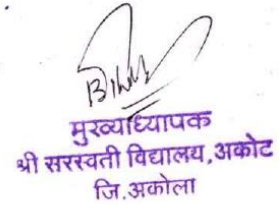 मुख्याध्यापक
श्री सरस्वती विद्यालय, अकोट
जि. अकोला